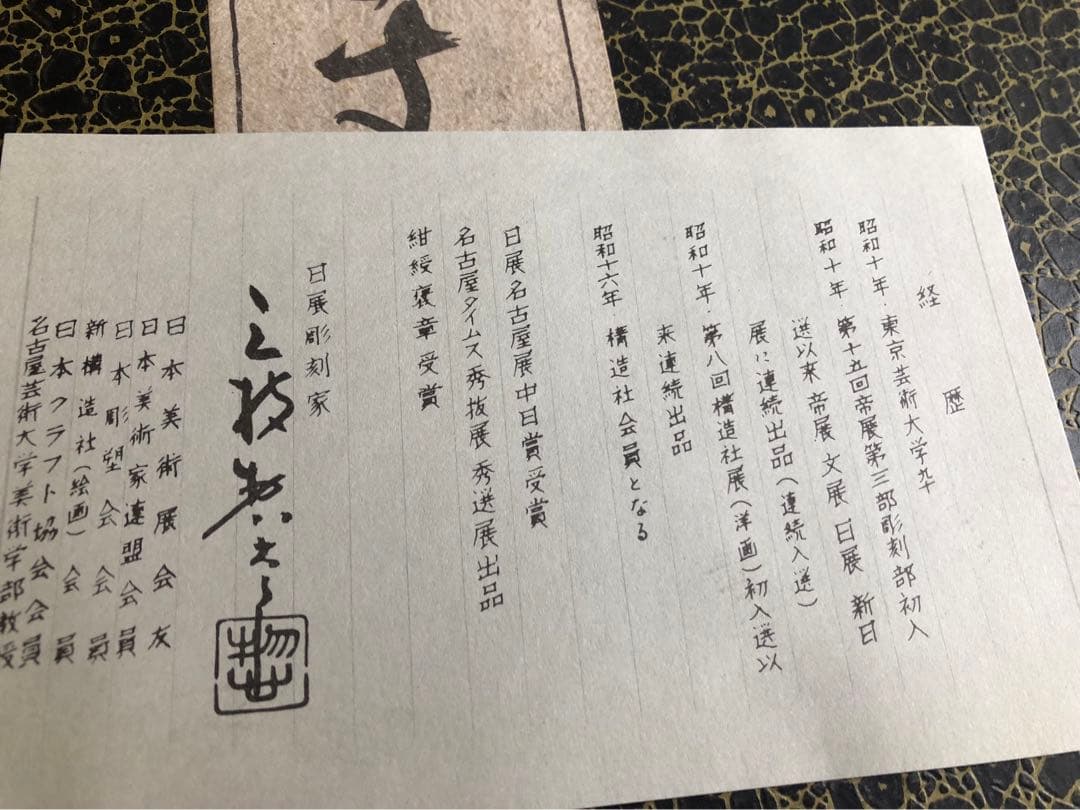 経歴
昭和十年・東京芸術大学卆
昭和十年・第十五回帝展第三部彫刻部初入
選以来 帝展 文展 日展 新日
展に連続出品(連続入選)
昭和十年・第八回構造社展(洋画)初入選以
来連続出品
昭和十六年 構造社会員となる
日展名古屋展中日賞受賞
名古屋タイムス秀抜展 秀選展出品
紺綬褒章受賞
日展彫刻家
日本美術展会友
日本美術家連盟会員
日本彫塑会会員
新構造社(絵画)会員
日本クラフト協会会員
名古屋芸術大学美術学部教授